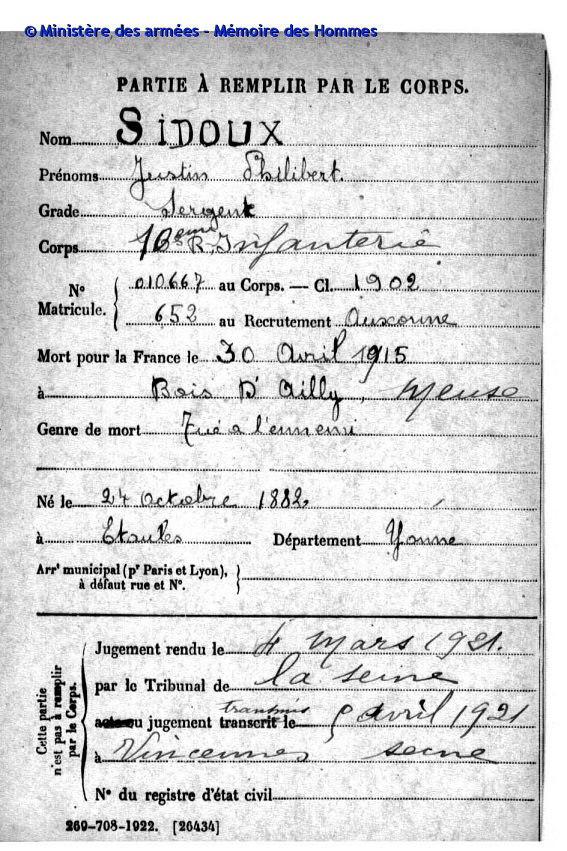 © Ministère des armées - Mémoire des Hommes
PARTIE À REMPLIR PAR LE CORPS.
Nom SIDOUX
Prénoms Justin Philibert.
Grade Sergent
Corps 10eme R. Infanterie
N° Matricule. { 010667 au Corps. — Cl. 1902
652 au Recrutement Auxonne
Mort pour la France le 30 Avril 1915
à Bois D'Ailly, Meuse
Genre de mort Tué a l'ennemi
Né le 24 Octobre 1882
à Etaules Département Yonne
Arrt municipal (pr Paris et Lyon), }
à défaut rue et N°.
Cette partie n'est pas à remplir par le Corps.
Jugement rendu le 4 Mars 1921.
par le Tribunal de la Seine
transmis
acte ou jugement transcrit le 5 avril 1921
à Vincennes Seine
N° du registre d'état civil
269-708-1922. [26434]